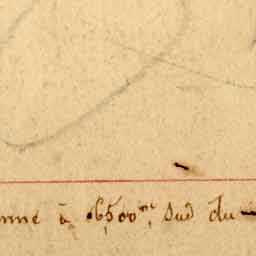 nne à 6,500m, Sud du